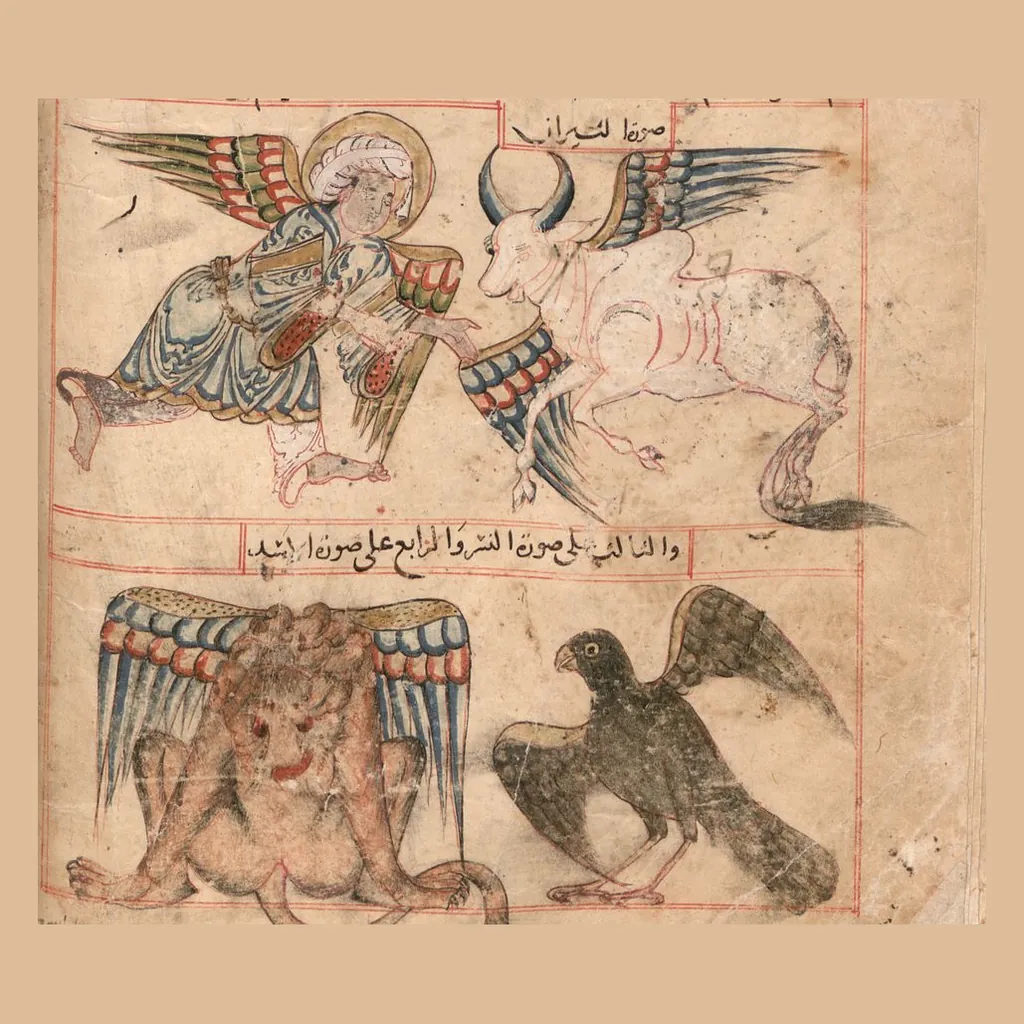 صورة الثيران
والثالث على صورة النسر والرابع على صورة الاسد